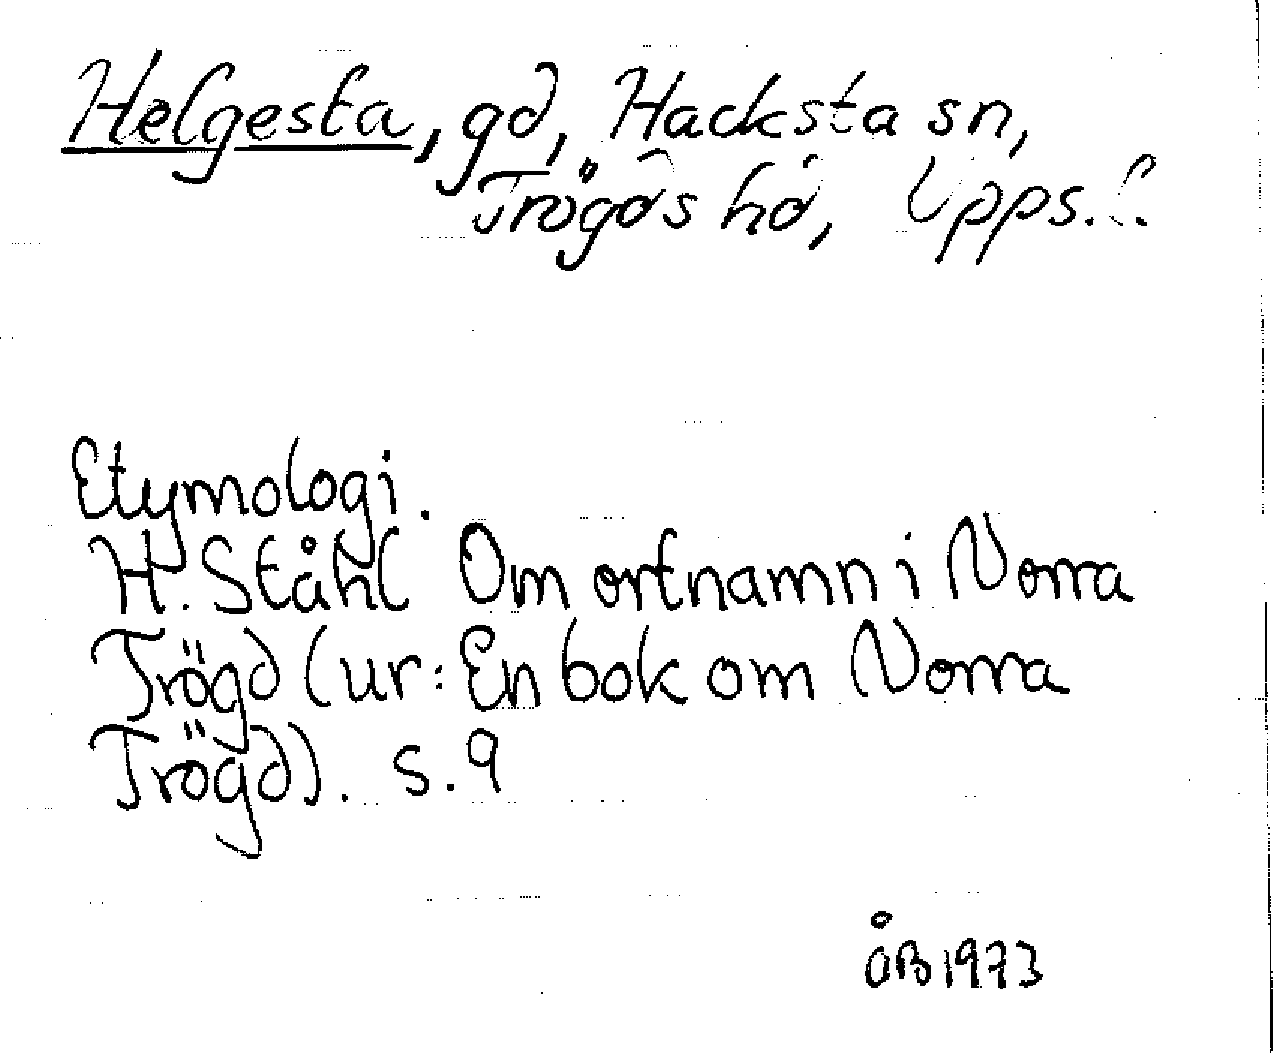 Helgesta, gd, Hacksta sn,
Trögds hd, Upps. l.
Etymologi.
H. Ståhl Om ortnamn i Norra
Trögd (ur: En bok om Norra
Trögd). s. 9
ÅB 1973